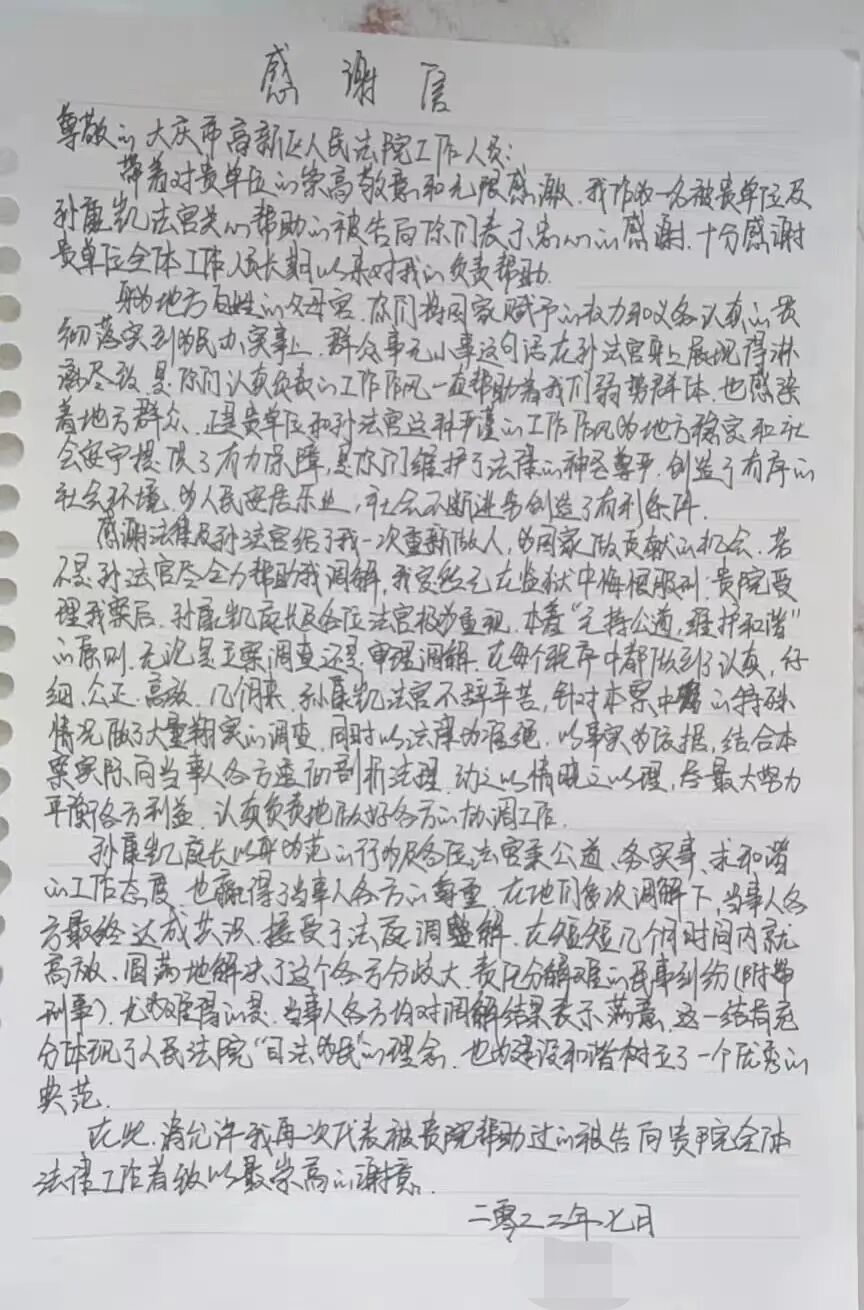 感谢信
尊敬的大庆市高新区人民法院工作人员:
带着对贵单位的崇高敬意和无限感激,我作为一名被贵单位及
孙康凯法官关心帮助的被告向你们表示衷心的感谢.十分感谢
贵单位全体工作人员长期以来对我的负责帮助.
身为地方百姓的父母官,你们将国家赋予的权力和义务认真的贯
彻落实到为民办实事上.群众事无小事这句话在孙法官身上展现得淋
漓尽致,是你们认真负责的工作作风一直帮助着我们弱势群体,也感染
着地方群众.正是贵单位和孙法官这种严谨的工作作风为地方稳定和社
会安宁提供了有力保障,是你们维护了法律的神圣尊严,创造了有序的
社会环境,为人民安居乐业,社会不断进步创造了有利条件.
感谢法律及孙法官给了我一次重新做人,为国家做贡献的机会.若
不是孙法官尽全力帮助我调解,我定然已在监狱中悔恨服刑.贵院受
理我案后,孙康凯庭长及各位法官极为重视,本着“主持公道,维护和谐”
的原则,无论是立案调查还是审理调解,在每个程序中都做到了认真,仔
细,公正,高效.几个月来,孙康凯法官不辞辛苦,针对本案中的特殊
情况做了大量翔实的调查,同时以法律为准绳,以事实为依据,结合本
案实际向当事人各方逐一剖析法理,动之以情晓之以理,尽最大努力
平衡各方利益,认真负责地做好各方的协调工作.
孙康凯庭长以身为范的行为及各位法官秉公道、务实事、求和谐
的工作态度,也赢得了当事人各方的尊重.在他们多次调解下,当事人各
方最终达成共识,接受了法庭调解.在短短几个月时间内就
高效、圆满地解决了这个各方分歧大、责任分解难的民事纠纷(附带
刑事).尤为难得的是,当事人各方均对调解结果表示满意,这一结果充
分体现了人民法院“司法为民”的理念,也为建设和谐树立了一个优秀的
典范.
在此,请允许我再次代表被贵院帮助过的被告向贵院全体
法律工作者致以最崇高的谢意.
二零二二年七月